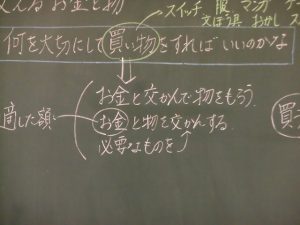 えるお金と物
スイッチ 服 マンガ
文ぼう具 おかし
何を大切にして買い物をすればいいのかな
お金と交かんで物をもらう。
お金と物を交かんする
必要なものを
した額
買